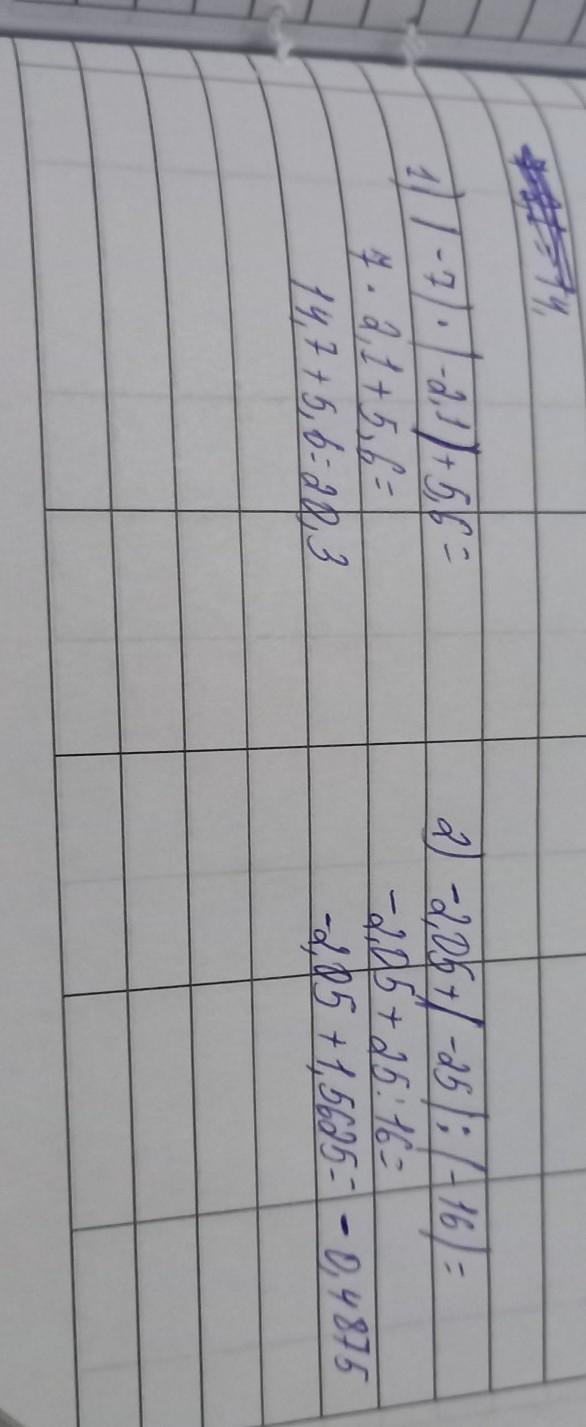 1) (-7) · (-2,1) + 5,6 =
7 · 2,1 + 5,6 =
14,7 + 5,6 = 20,3
2) -2,05 + (-25) : (-16) =
-2,05 + 25 : 16 =
-2,05 + 1,5625 = -0,4875